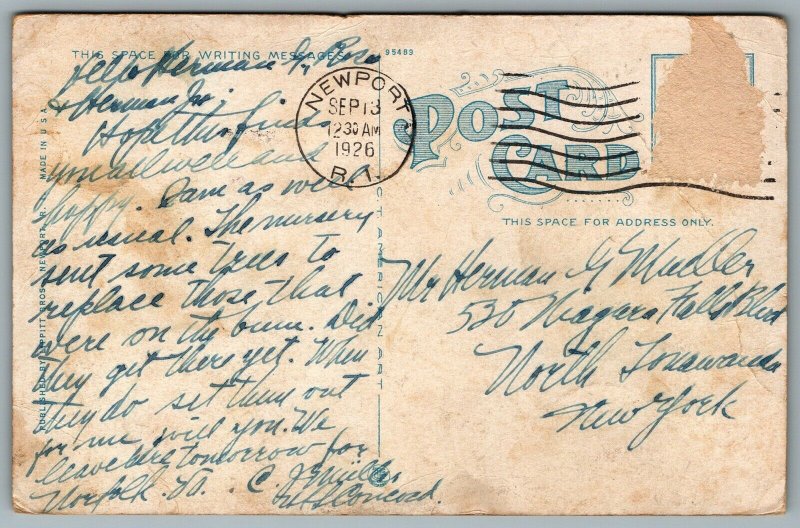 THIS SPACE FOR WRITING MESSAGES
95489
Hello Herman G, Rosa
& Herman Jr;
Hope this finds
you all well and
happy. I am as well
as usual. The nursery
sent some trees to
replace those that
were on the bum. Did
they get there yet. When
they do set them out
for me will you. We
leave here tomorrow for
Norfolk. Va. C. J. Müller
USS Concord.
MADE IN U.S.A.
PUBLISHED BY NEWPORT, R.I.
AMERICAN ART
NEWPORT
SEP 13
12 30 AM
1926
R.I.
POST
CARD
THIS SPACE FOR ADDRESS ONLY.
Mr Herman G Mueller
530 Niagara Falls Blvd
North Tonawanda
New York